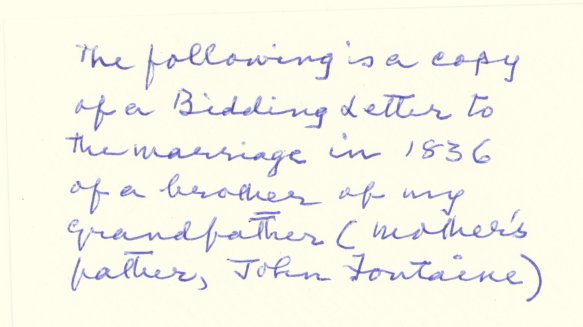 The following is a copy
of a Bidding Letter to
the marriage in 1836
of a brother of my
grandfather (mother's
father, John Fontaine)